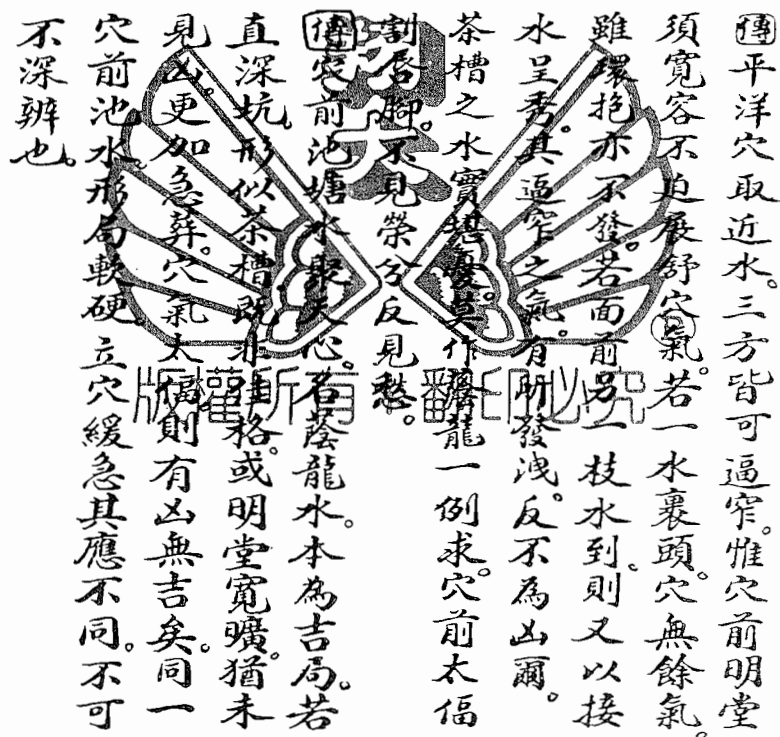 傳平洋穴取近水。三方皆可逼窄。惟穴前明堂
須寬容不迫展舒穴氣。若一水裹頭。穴無餘氣。
雖環抱亦不發。若面前另一枝水到。則又以接
水呈秀。其逼窄之氣。有所發洩。反不為凶爾。
茶槽之水實堪憂。莫作蔭龍一例求。穴前太偪
割唇腳。不見榮兮反見愁。
傳穴前池塘水聚天心。名蔭龍水。本為吉局。若
直深坑。形似茶槽。既非佳格。或明堂寬曠。猶未
見凶。更加急葬。穴氣太偪。則有凶無吉矣。同一
穴前池水。形局軟硬。立穴緩急其應不同。不可
不深辨也。
版權所有 翻印必究